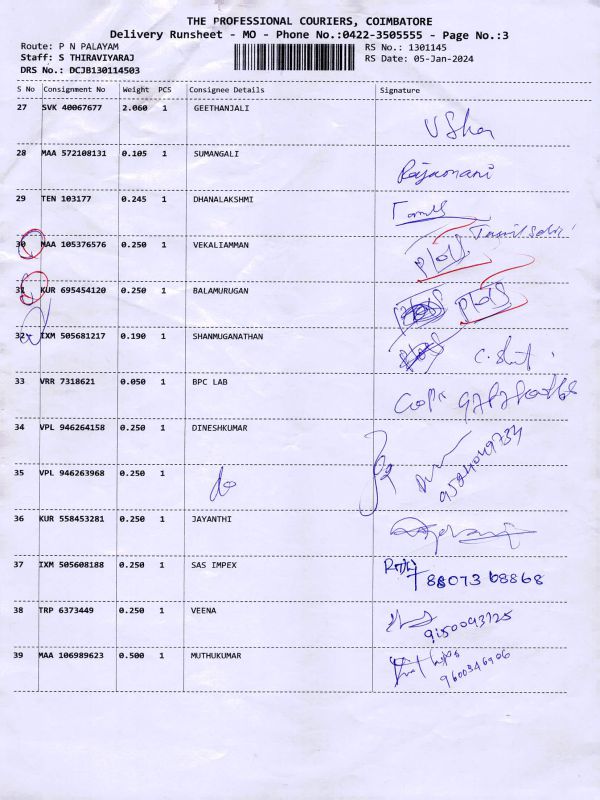 THE PROFESSIONAL COURIERS, COIMBATORE
Delivery Runsheet - MO - Phone No.:0422-3505555 - Page No.:3
Route: P N PALAYAM
RS No.: 1301145
Staff: S THIRAVIYARAJ
RS Date: 05-Jan-2024
DRS No.: DCJB130114503
S No Consignment No Weight PCS Consignee Details Signature
27 SVK 40067677 2.060 1 GEETHANJALI
28 MAA 572108131 0.105 1 SUMANGALI Rajamani
29 TEN 103177 0.245 1 DHANALAKSHMI
30 MAA 105376576 0.250 1 VEKALIAMMAN
31 KUR 695454120 0.250 1 BALAMURUGAN
32 IXM 505681217 0.190 1 SHANMUGANATHAN
33 VRR 7318621 0.050 1 BPC LAB
34 VPL 946264158 0.250 1 DINESHKUMAR
35 VPL 946263968 0.250 1 do
36 KUR 558453281 0.250 1 JAYANTHI
37 IXM 505608188 0.250 1 SAS IMPEX 88073 68868
38 TRP 6373449 0.250 1 VEENA
39 MAA 106989623 0.500 1 MUTHUKUMAR 9600346906